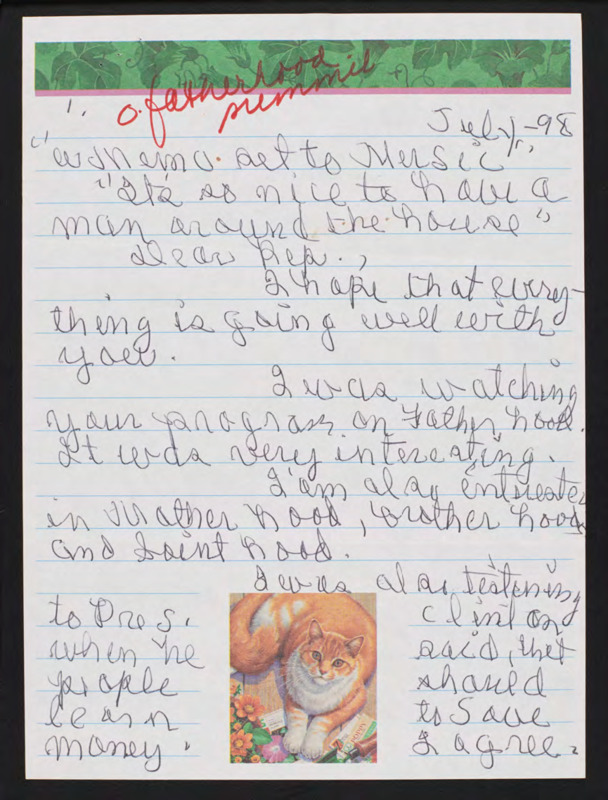 1.
o. fatherhood
summit
July, -98
set to Mersic
"Its so nice to have a
man around the house"
Dear Rep.,
I hope that every-
thing is going well with
you.
I was watching
your program on Father hood.
It was very interesting.
I am also
in Mother hood, brother hood
and Saint hood.
I was also
to Pres. Clinton
when he said, that
people should
learn to Save
money. I agree.